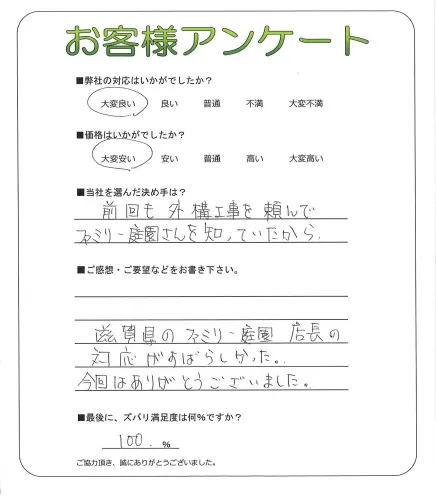 お客様アンケート
■弊社の対応はいかがでしたか？
大変良い 良い 普通 不満 大変不満
■価格はいかがでしたか？
大変安い 安い 普通 高い 大変高い
■当社を選んだ決め手は？
前回も外構工事を頼んで
ファミリー庭園さんを知っていたから.
■ご感想・ご要望などをお書き下さい。
滋賀県のファミリー庭園 店長の
対応がすばらしかった。
今回はありがとうございました。
■最後に、ズバリ満足度は何％ですか？
100. %
ご協力頂き、誠にありがとうございました。